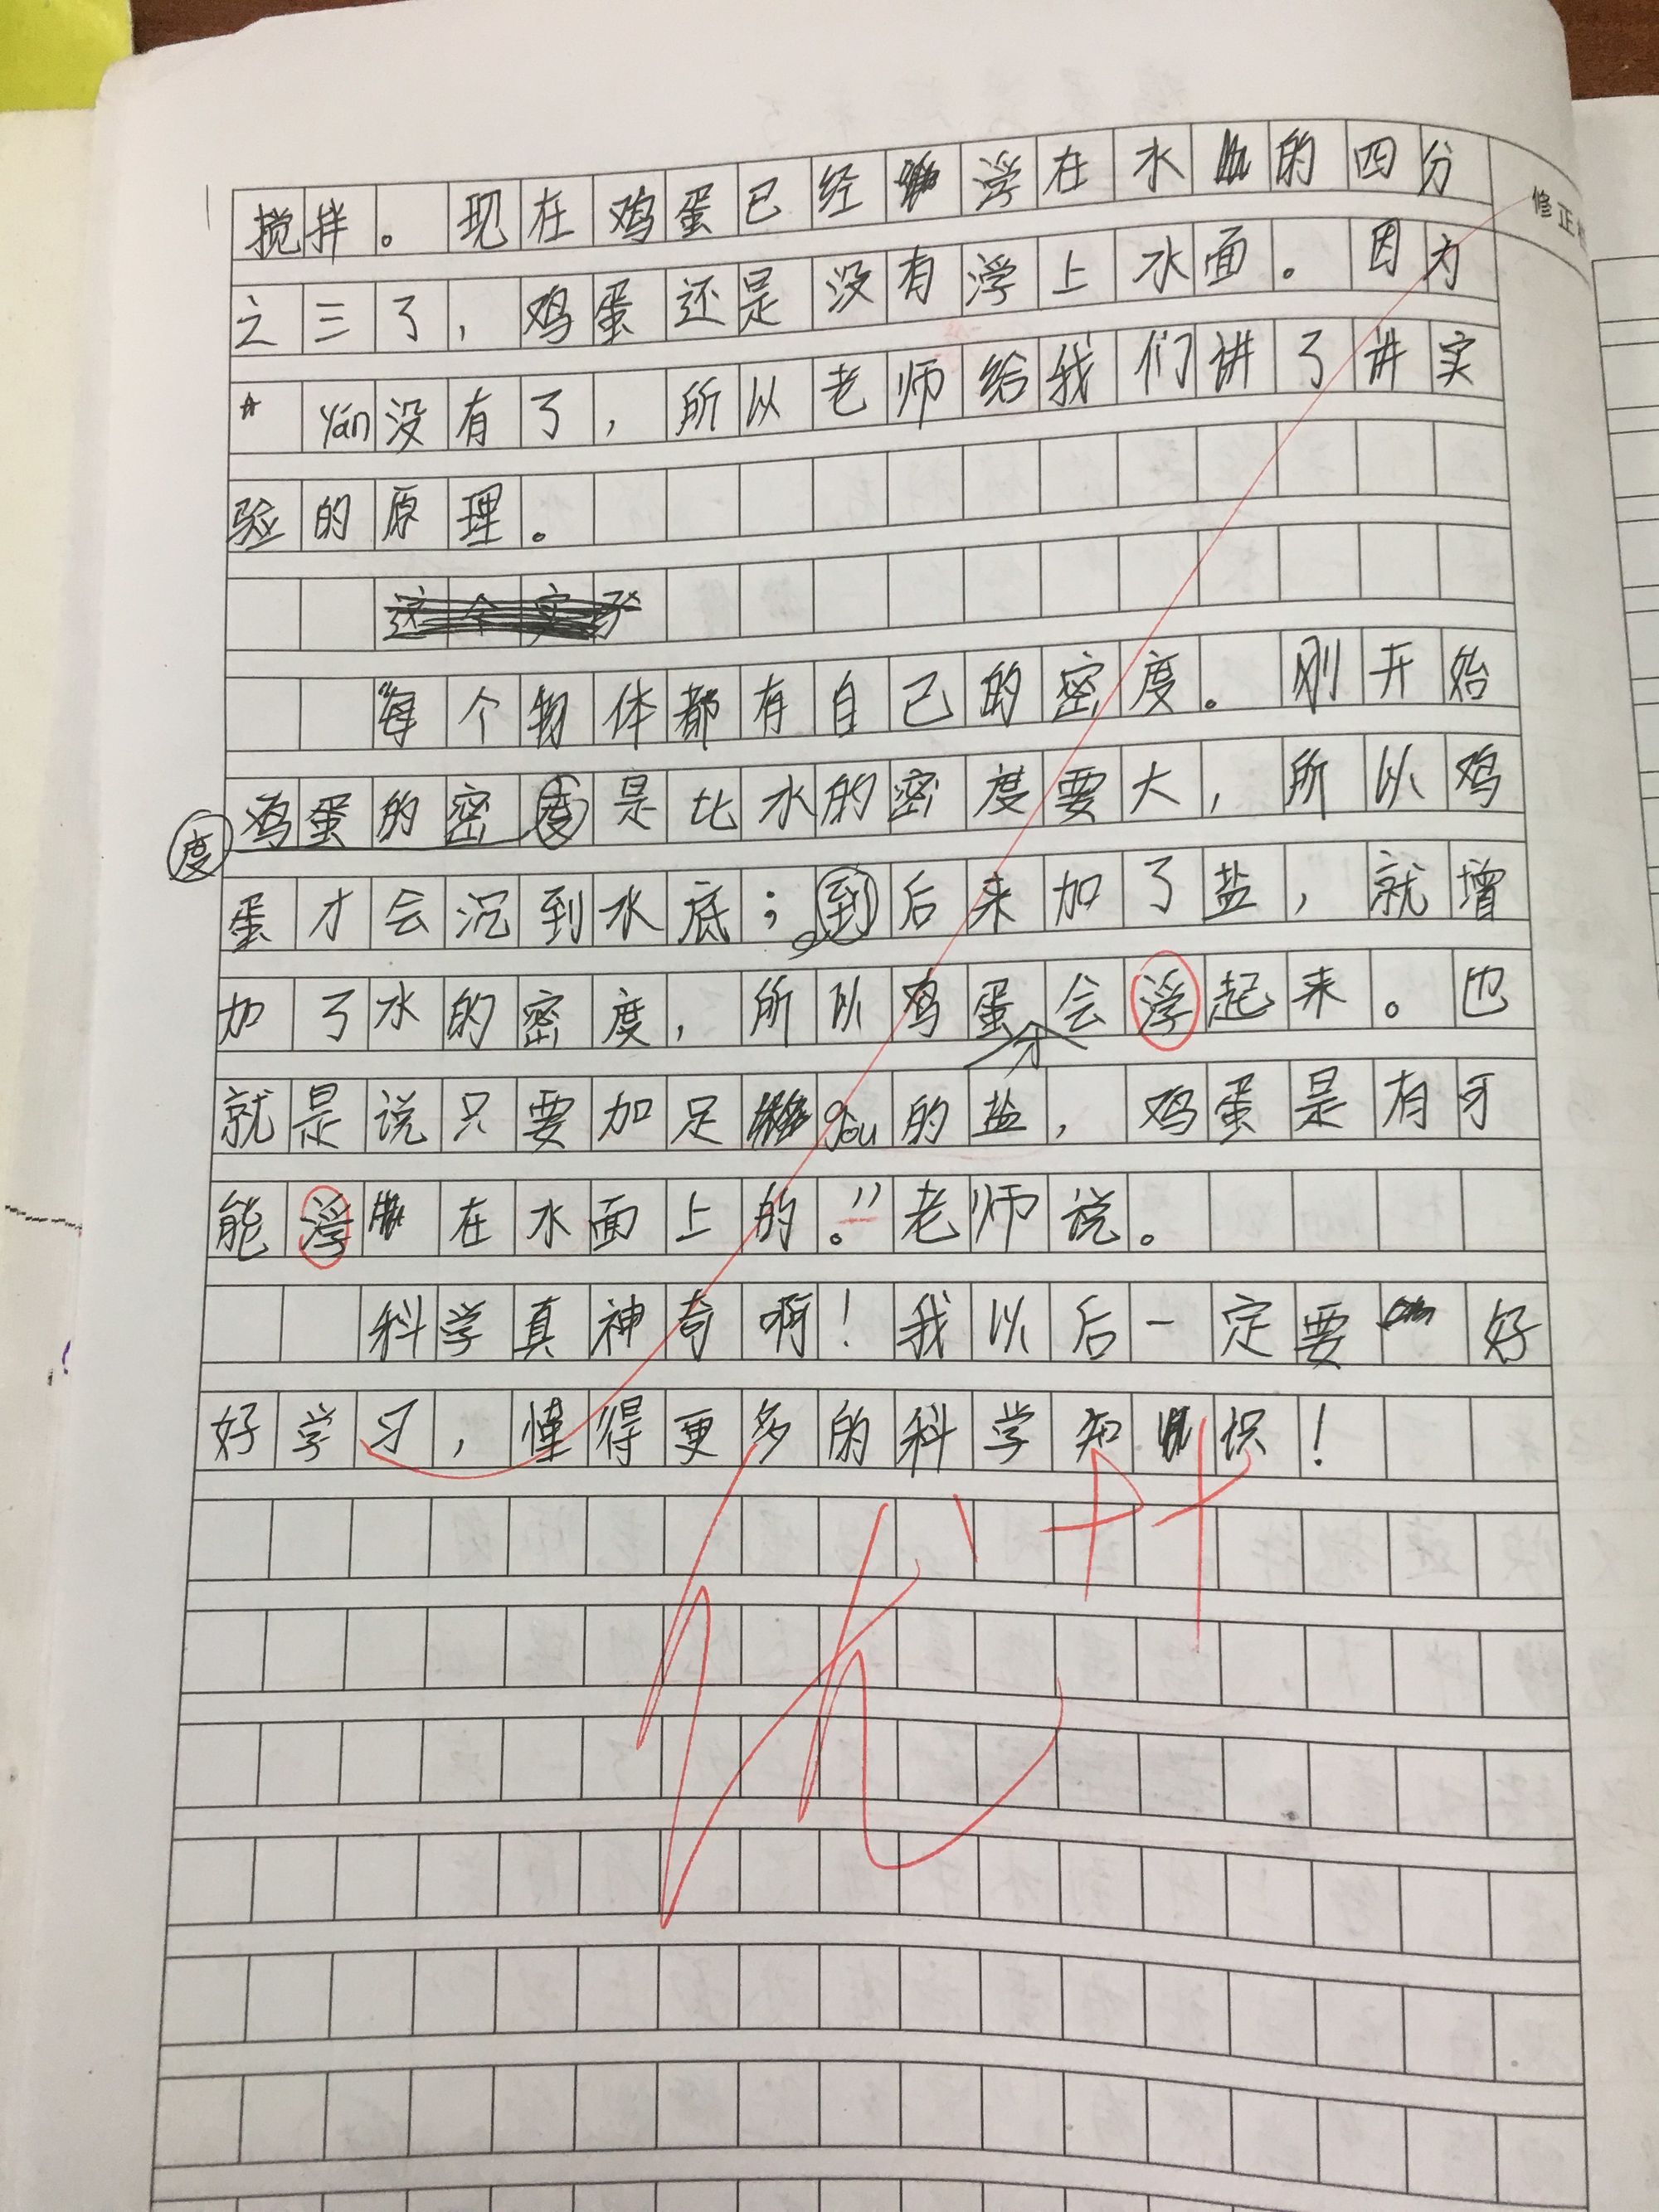 搅拌。现在鸡蛋已经浮在水的四分
修正
之三了，鸡蛋还是没有浮上水面。因为
yán没有了，所以老师给我们讲了讲实
验的原理。
这个实
“每个物体都有自己的密度。刚开始
鸡蛋的密度是比水的密度要大，所以鸡
度
蛋才会沉到水底；到后来加了盐，就增
加了水的密度，所以鸡蛋才会浮起来。也
就是说只要加足gòu的盐，鸡蛋是有可
能浮在水面上的。”老师说。
科学真神奇啊！我以后一定要好
好学习，懂得更多的科学知识！
优++